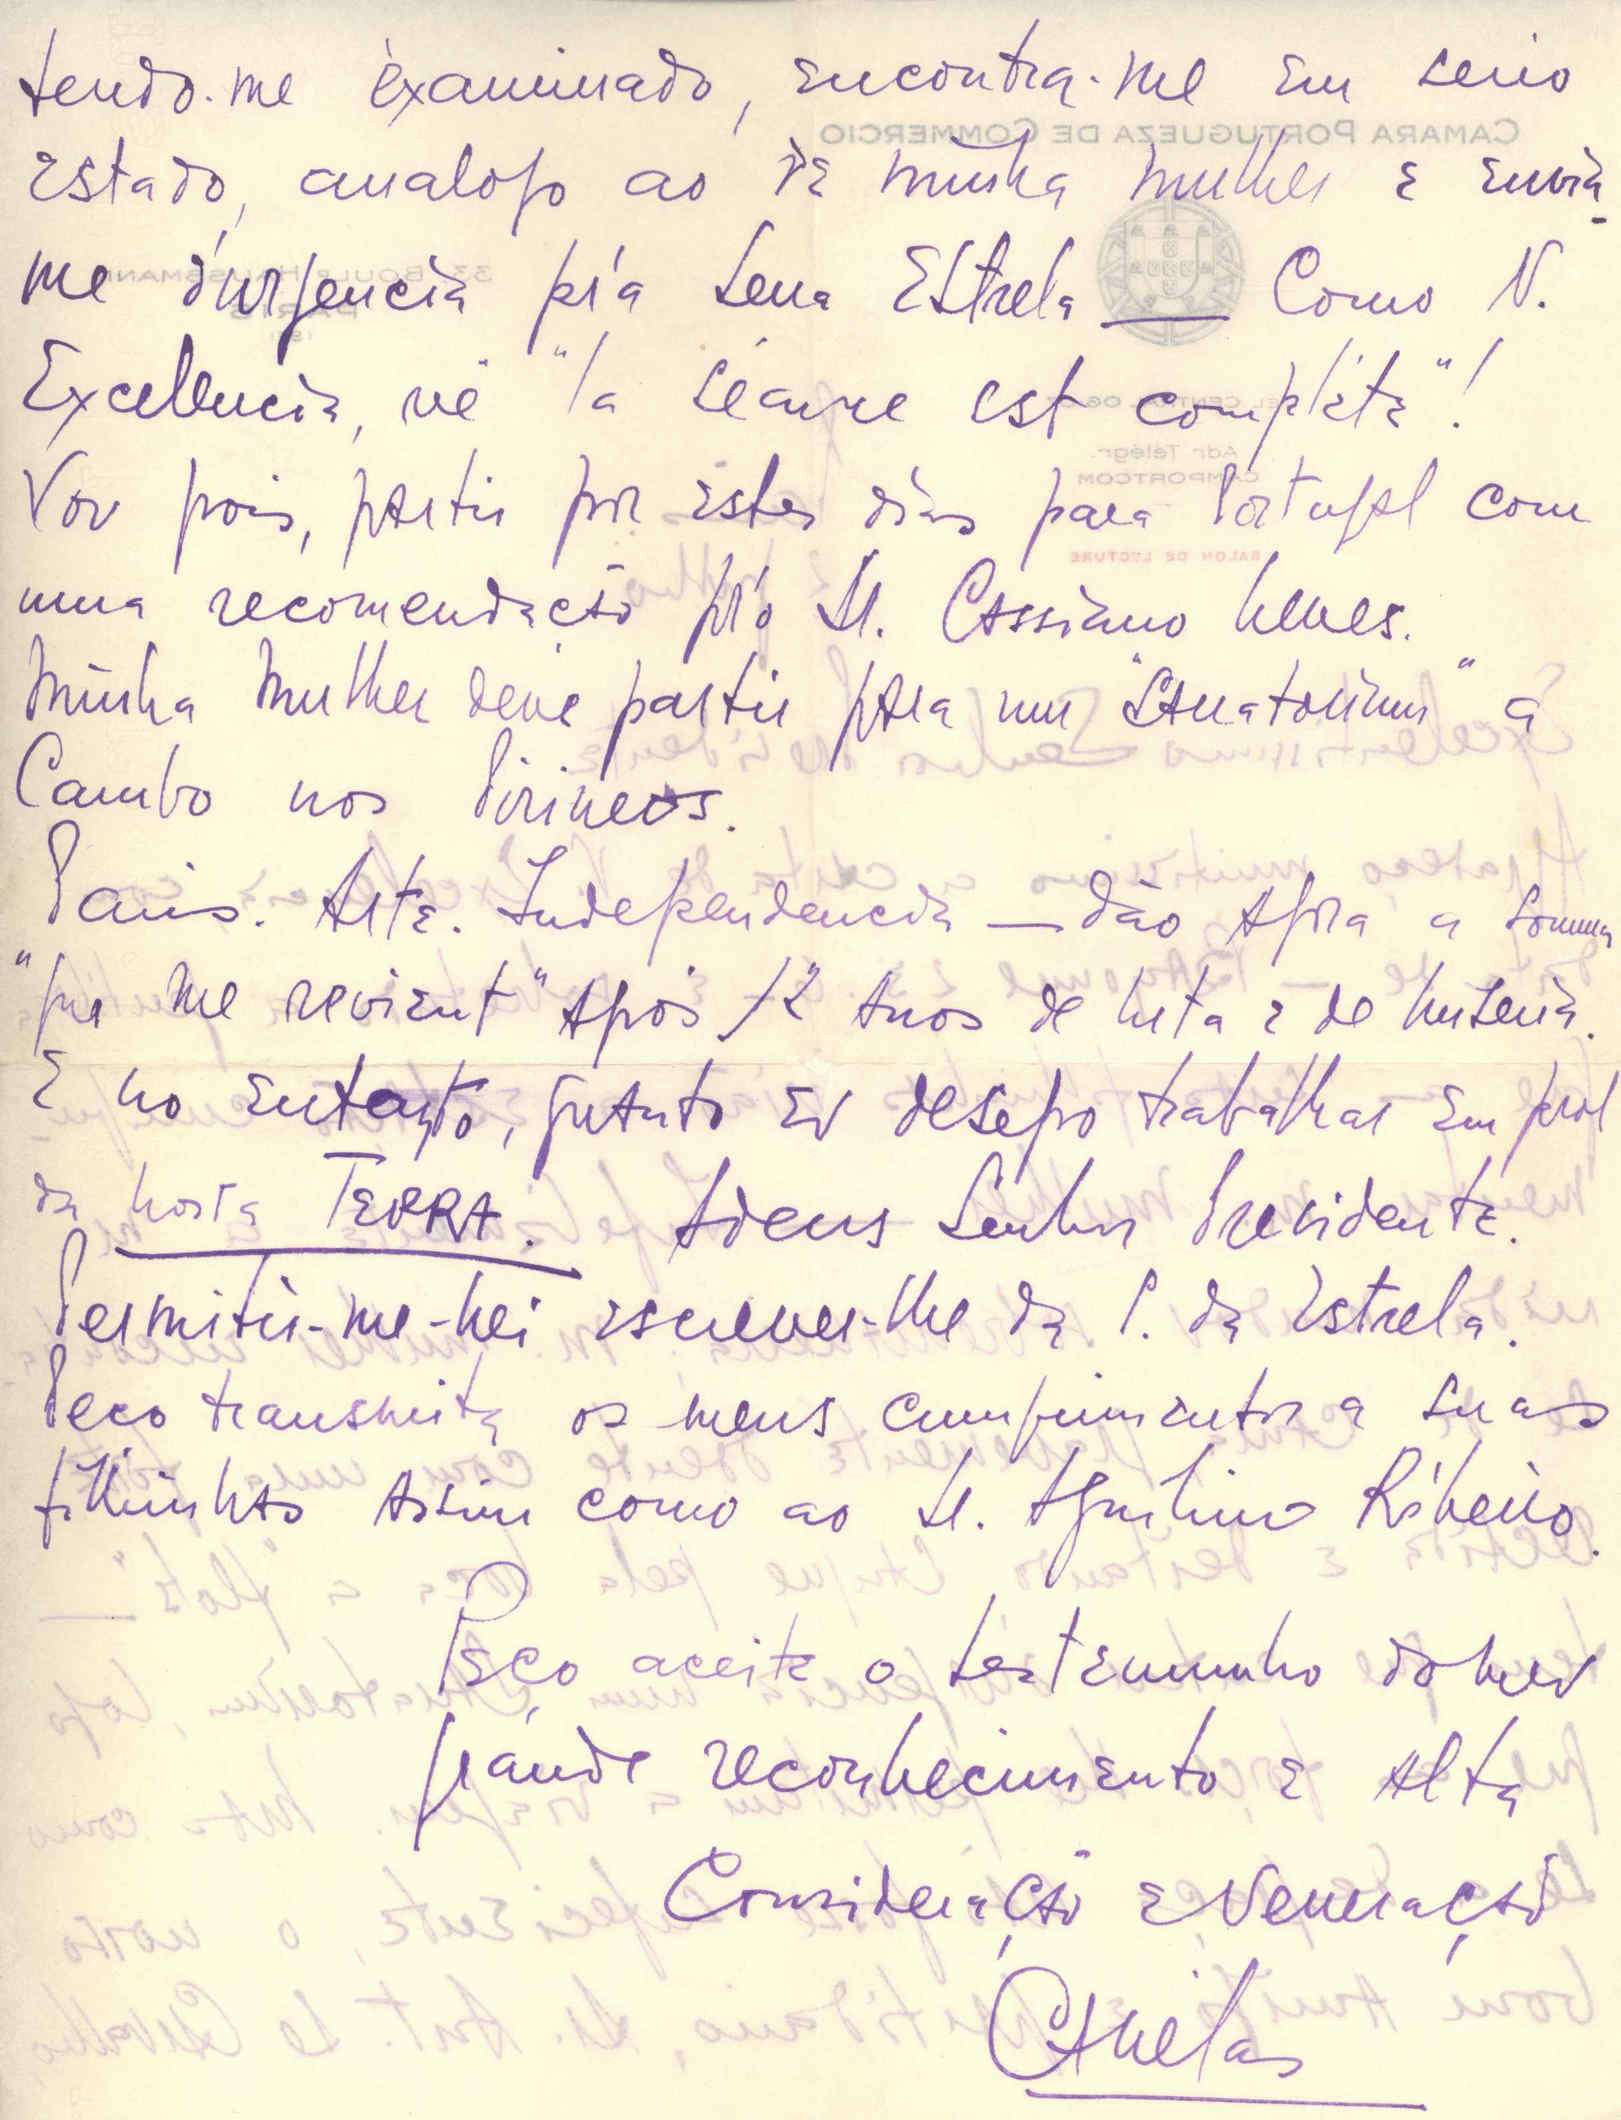 tendo-me examinado, encontra-me em serio
estado, analogo ao de minha mulher e envia-
me d'urgencia p'ra Serra Estrela — Como V.
Excellencia, vê "la séance est complète"!
Vou pois, partir por estes dias para Portugal com
uma recomendação p'ró Sr. Cassiano Neves.
Minha mulher deve partir para um "Sanatorium" a
Cambo nos Pirineos.
Paris. Arte. Independencia — dão agora a somma
"que me revient" após 12 anos de luta e de miseria.
E no entanto, quanto eu desejo trabalhar em prol
da nossa TERRA. Adeus Senhor Presidente.
Permitir-me-hei escrever-lhe da S. da Estrela.
Peço transmita os meus cumprimentos a suas
filhinhas assim como ao Sr. Aquilino Ribeiro.
Peço aceite o testemunho do meu
grande reconhecimento e Alta
Consideração e Veneração
CAMARA PORTUGUEZA DE COMMERCIO
33, BOUL. HAUSSMANN
PARIS
Adr Télégr.
CAMPORTCOM
SALON DE LECTURE